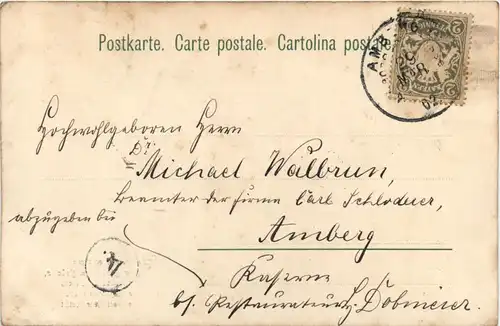 Postkarte. Carte postale. Cartolina postale.
AMB
02
2
2
Hochwohlgeboren Herrn
Dr.
Michael Walbrun,
Beamter der Firma Carl Schloderer,
abzugeben bei
Amberg
4.
Kaserne
b/. Restaurateur H. Dobmeier.